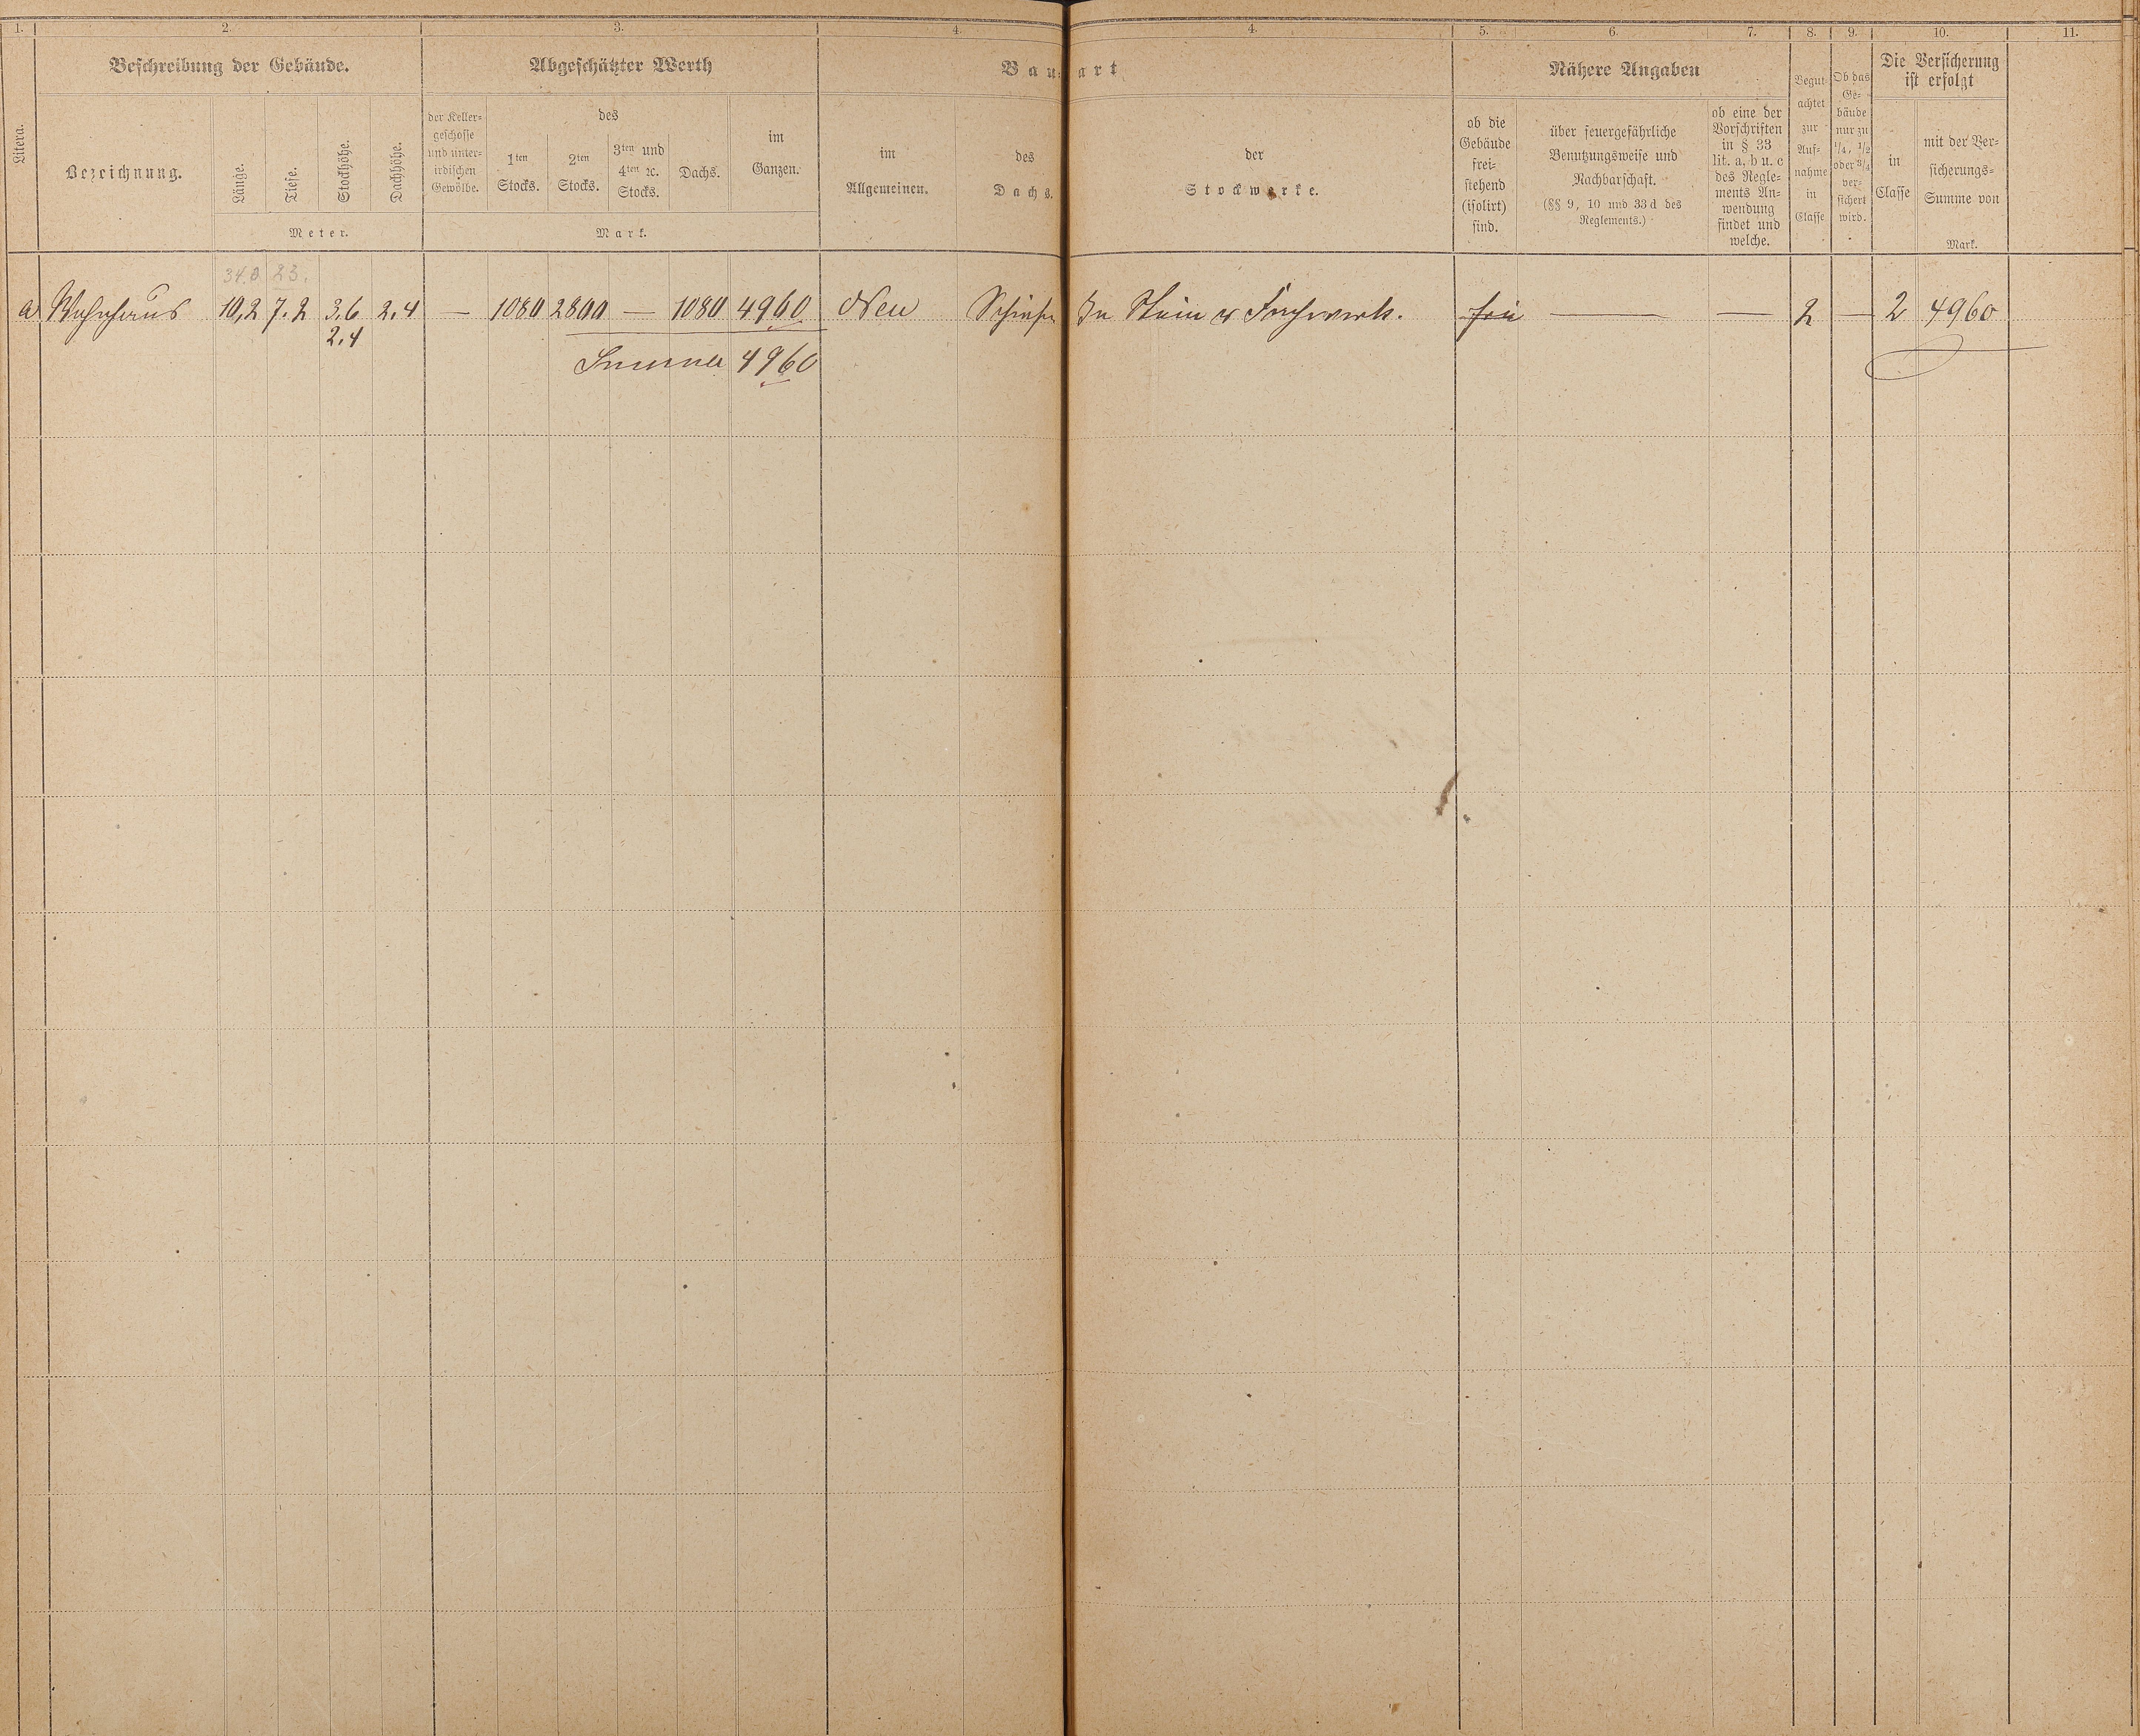 1. 2. 3. 4. 4. 5. 6. 7. 8. 9. 10. 11.
Litera.
Beschreibung der Gebäude.
Bezeichnung.
Länge.
Tiefe.
Stockhöhe.
Dachhöhe.
Meter.
Abgeschätzter Werth
der Keller=
geschosse
und unter=
irdischen
Gewölbe.
des
1ten
Stocks.
2ten
Stocks.
3ten und
4ten ꝛc.
Stocks.
Dachs.
im
Ganzen.
Mark.
Bau=art
im
Allgemeinen.
des
Dachs.
der
Stockwerke.
Nähere Angaben
ob die
Gebäude
frei=
stehend
(isolirt)
sind.
über feuergefährliche
Benutzungsweise und
Nachbarschaft.
(§§ 9, 10 und 33 d des
Reglements.)
ob eine der
Vorschriften
in § 33
lit. a, b u. c
des Regle=
ments An=
wendung
findet und
welche.
Begut
achtet
zur
Auf=
nahme
in
Classe
Ob das
Ge=
bäude
nur zu
1/4, 1/2
oder 3/4
ver=
sichert
wird.
Die Versicherung
ist erfolgt
in
Classe
mit der Ver=
sicherungs=
Summe von
Mark.
34.0 23.
a Wohnhaus 10,2 7.2 3,6 2,4 — 1080 2800 — 1080 4960 Neu Schiefer In Stein u Fachwerk. frei — — 2 — 2 4960
2,4
Summa 4960